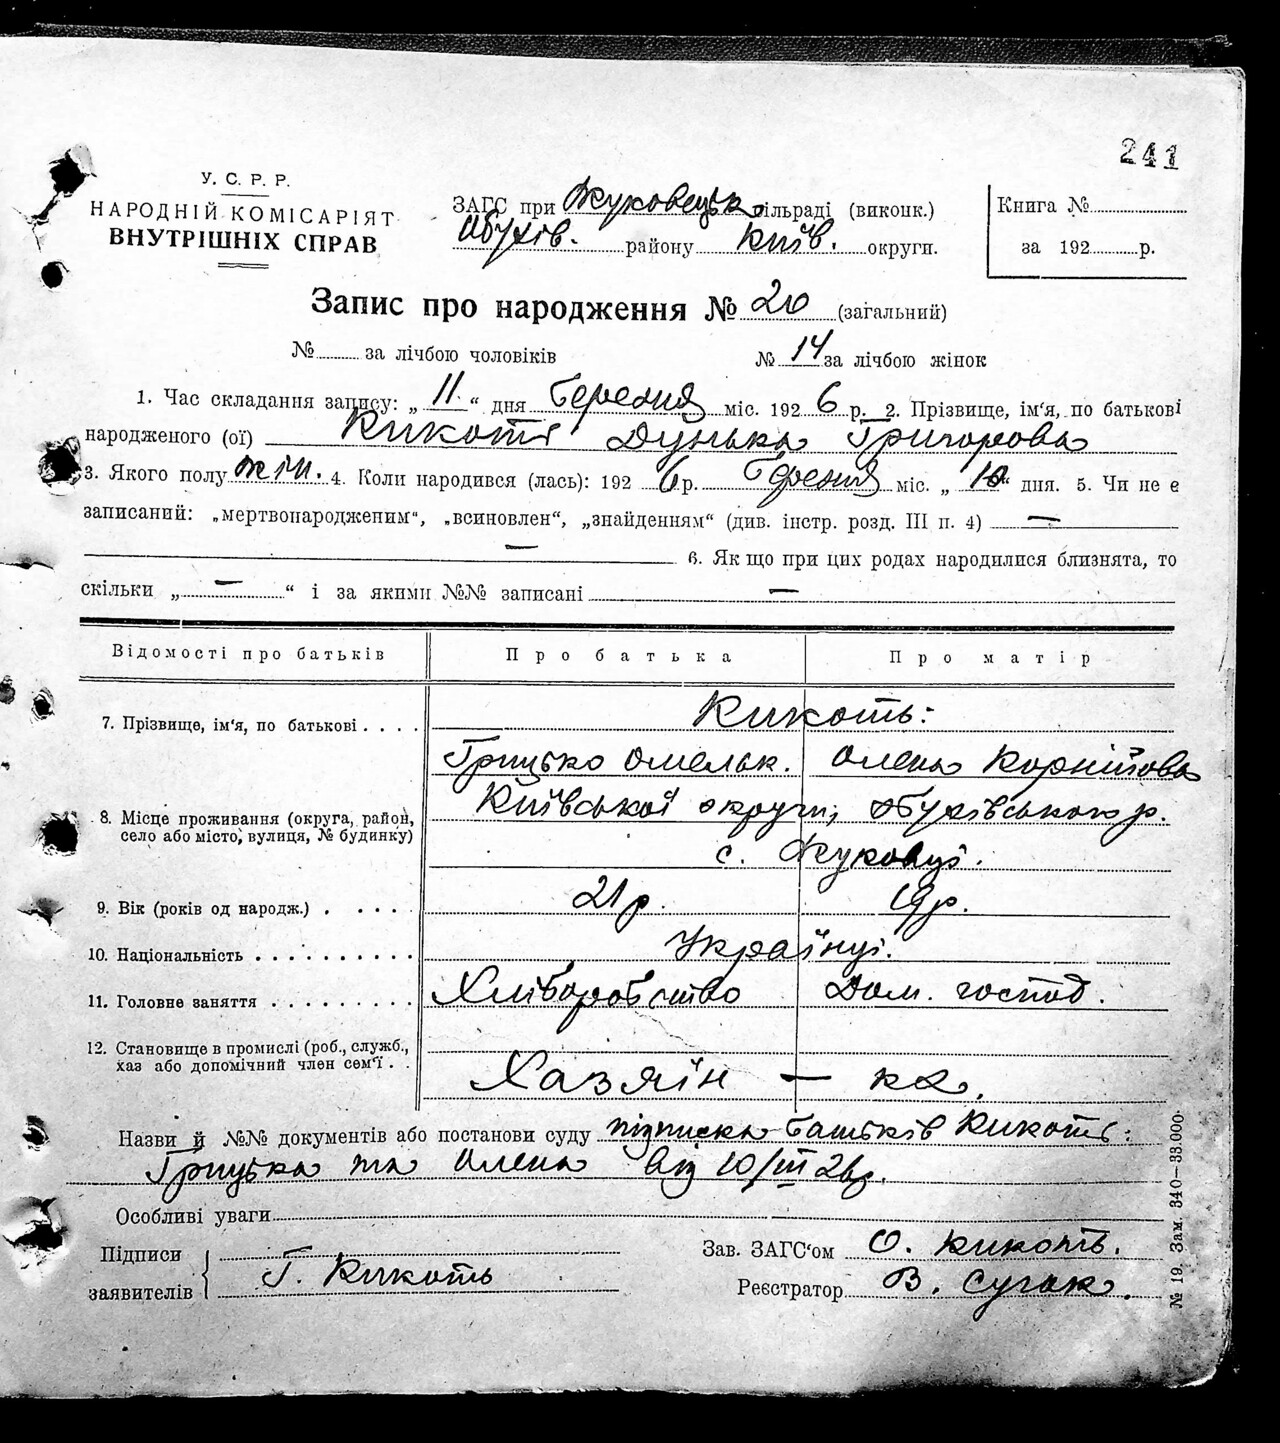 241
У. С. Р. Р.
НАРОДНІЙ КОМІСАРІЯТ
ВНУТРІШНІХ СПРАВ
ЗАГС при Жуковецьк. сільраді (виконк.)
Обухів. району Київ. округи.
Книга №
за 192 р.
Запис про народження № 20 (загальний)
№ за лічбою чоловіків № 14 за лічбою жінок
1. Час складання запису: „ 11 “ дня березня міс. 192 6 р. 2. Прізвище, ім'я, по батькові
народженого (ої) Кикоть Дунька Григорова
3. Якого полу жін. 4. Коли народився (лась): 192 6 р. березня міс. „ 10 “ дня. 5. Чи не є
записаний: „мертвонародженим“, „всиновлен“, „знайденням“ (див. інстр. розд. III п. 4) —
— 6. Як що при цих родах народилися близнята, то
скільки „ — “ і за якими №№ записані —
Відомості про батьків Про батька Про матір
7. Прізвище, ім'я, по батькові . . . . Кикоть:
Грицько Омельк. Олена Корнійова
8. Місце проживання (округа, район, село або місто, вулиця, № будинку) Київської округи, Обухівського р.
с. Жуковці.
9. Вік (років од народж.) . . . . . 21 р. 19 р.
10. Національність . . . . . . . . . . Українці.
11. Головне заняття . . . . . . . . . Хліборобство Дом. господ.
12. Становище в промислі (роб., служб., хаз або допомічний член сем'ї . .
Хазяїн — ка.
Назви й №№ документів або постанови суду підписка батьків Кикоть:
Грицька та Олена від 10/III 26 р.
Особливі уваги
Підписи заявителів { Г. Кикоть
Зав. ЗАГС'ом О. Кикоть.
Реєстратор В. Сугак.
№ 19. Зам. 340—33.000.